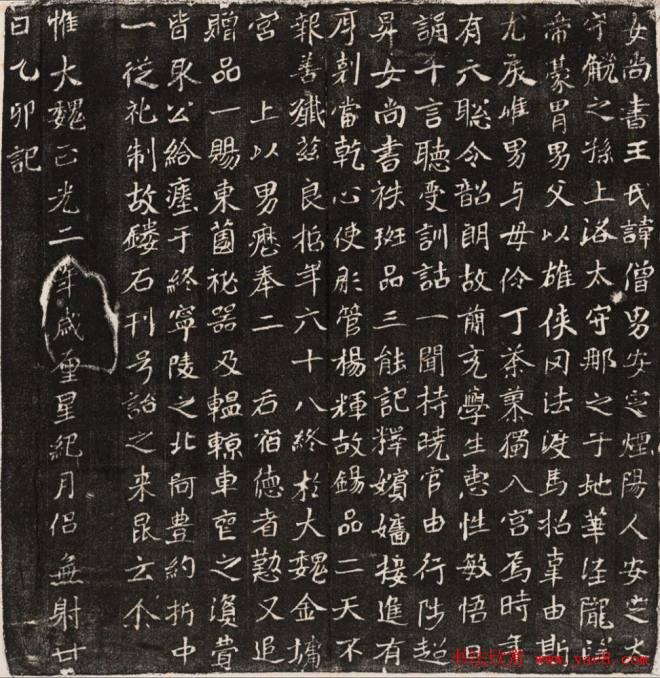 女尚書王氏諱僧男安定煙陽人安定太
守毓之孫上洛太守那之子地華涇隴
帝豪冑男父以雄俠罔法渡馬招辜由斯
尤戾唯男与母伶丁荼蓼獨入宮焉時年
有六聰令韶朗故簡充學生惠性敏悟
誦千言聽受訓詁一聞持曉官由行陟超
昇女尚書秩班品三能記釋嬪嬙接進有
序剋當乾心使彤管楊輝故錫品二天不
報善殲茲良哲年六十八終於大魏金墉
宮 上以男歷奉二 后宿德者懃又追
贈品一賜東園祕器及轀輬車瘞之資費
皆取公給塟于終寧陵之北阿豊約折中
一從礼制故鏤石刊号詒之来昆云尒
惟大魏正光二年歲星紀月侶無射廿
日乙卯記
书法欣赏 www.yac8.com